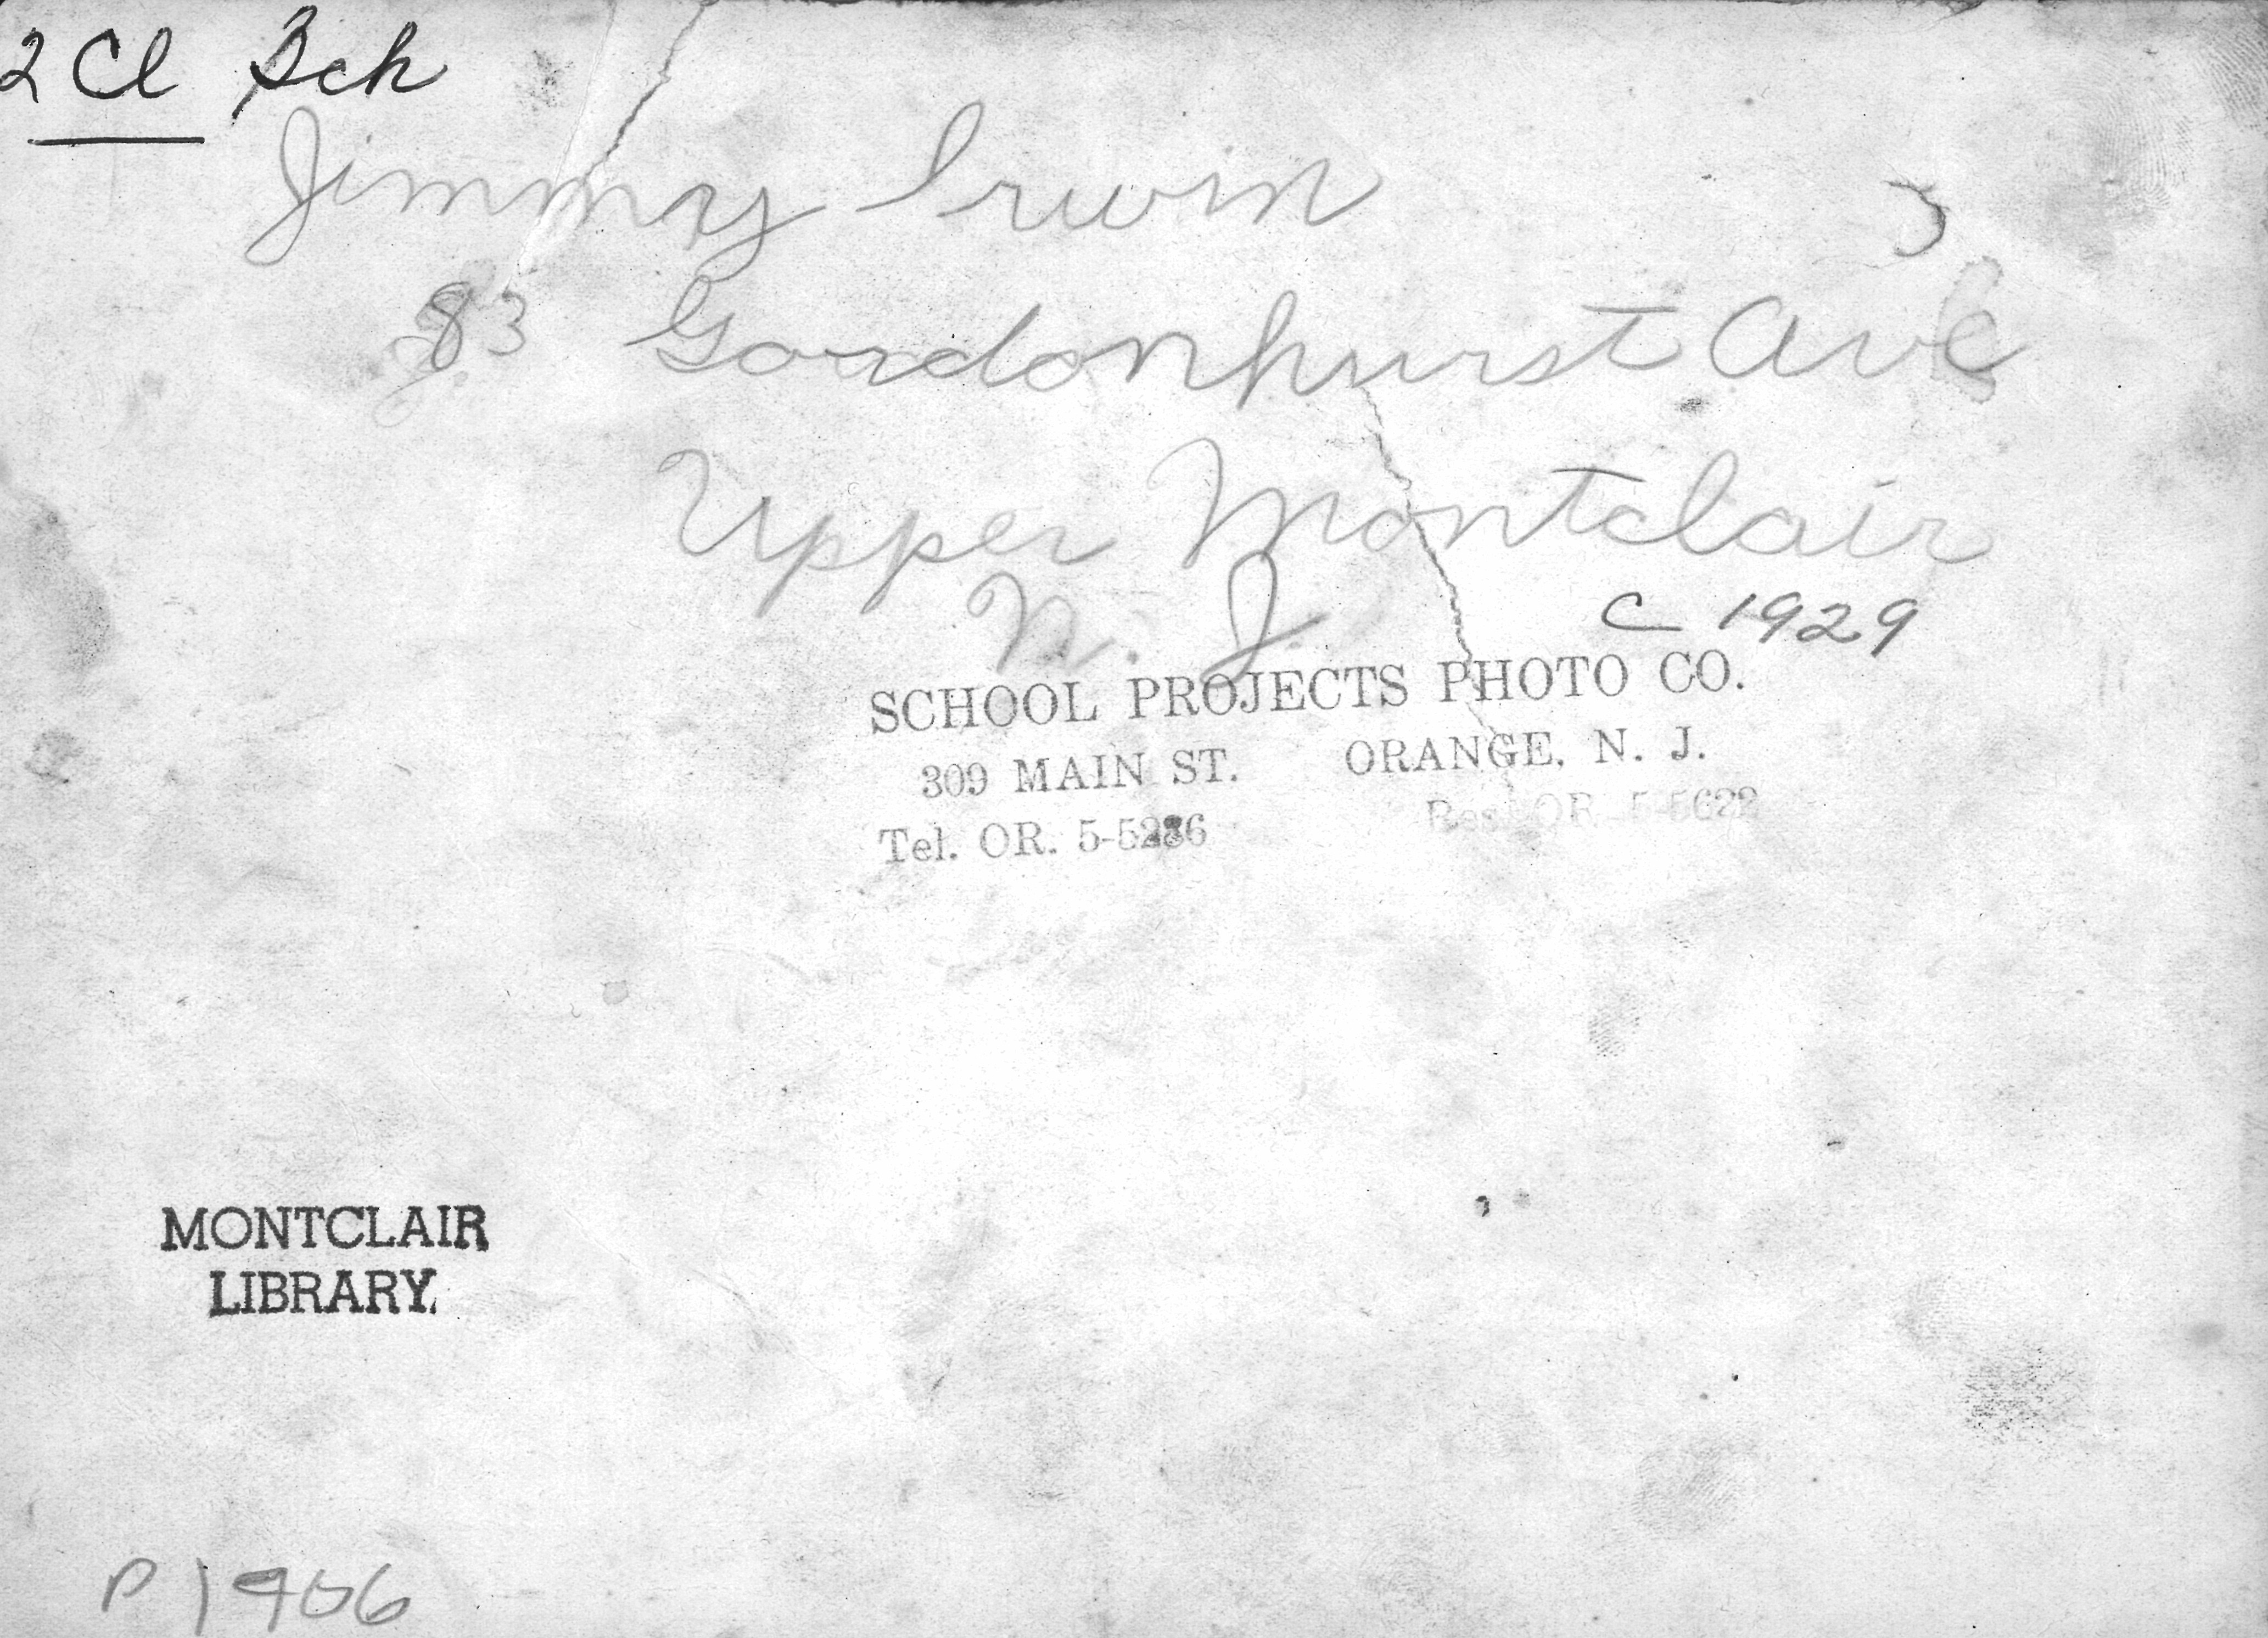 2 Cl Sch
Jimmy Irwin
83 Gordonhurst Ave
Upper Montclair
N. J.
C 1929
SCHOOL PROJECTS PHOTO CO.
309 MAIN ST. ORANGE, N. J.
Tel. OR. 5-5286 Res. OR. 5-5622
MONTCLAIR
LIBRARY
P 1906